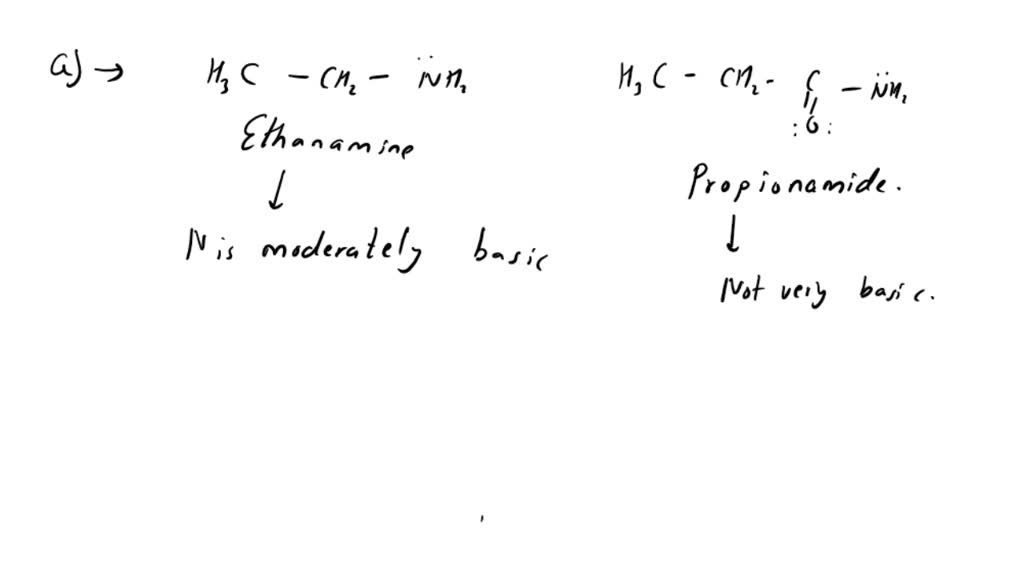 a) → H₃C – CH₂ – N̈H₂
Ethanamine
↓
N is moderately basic
H₃C - CH₂ - C – N̈H₂
||
:O:
Propionamide.
↓
Not very basic.